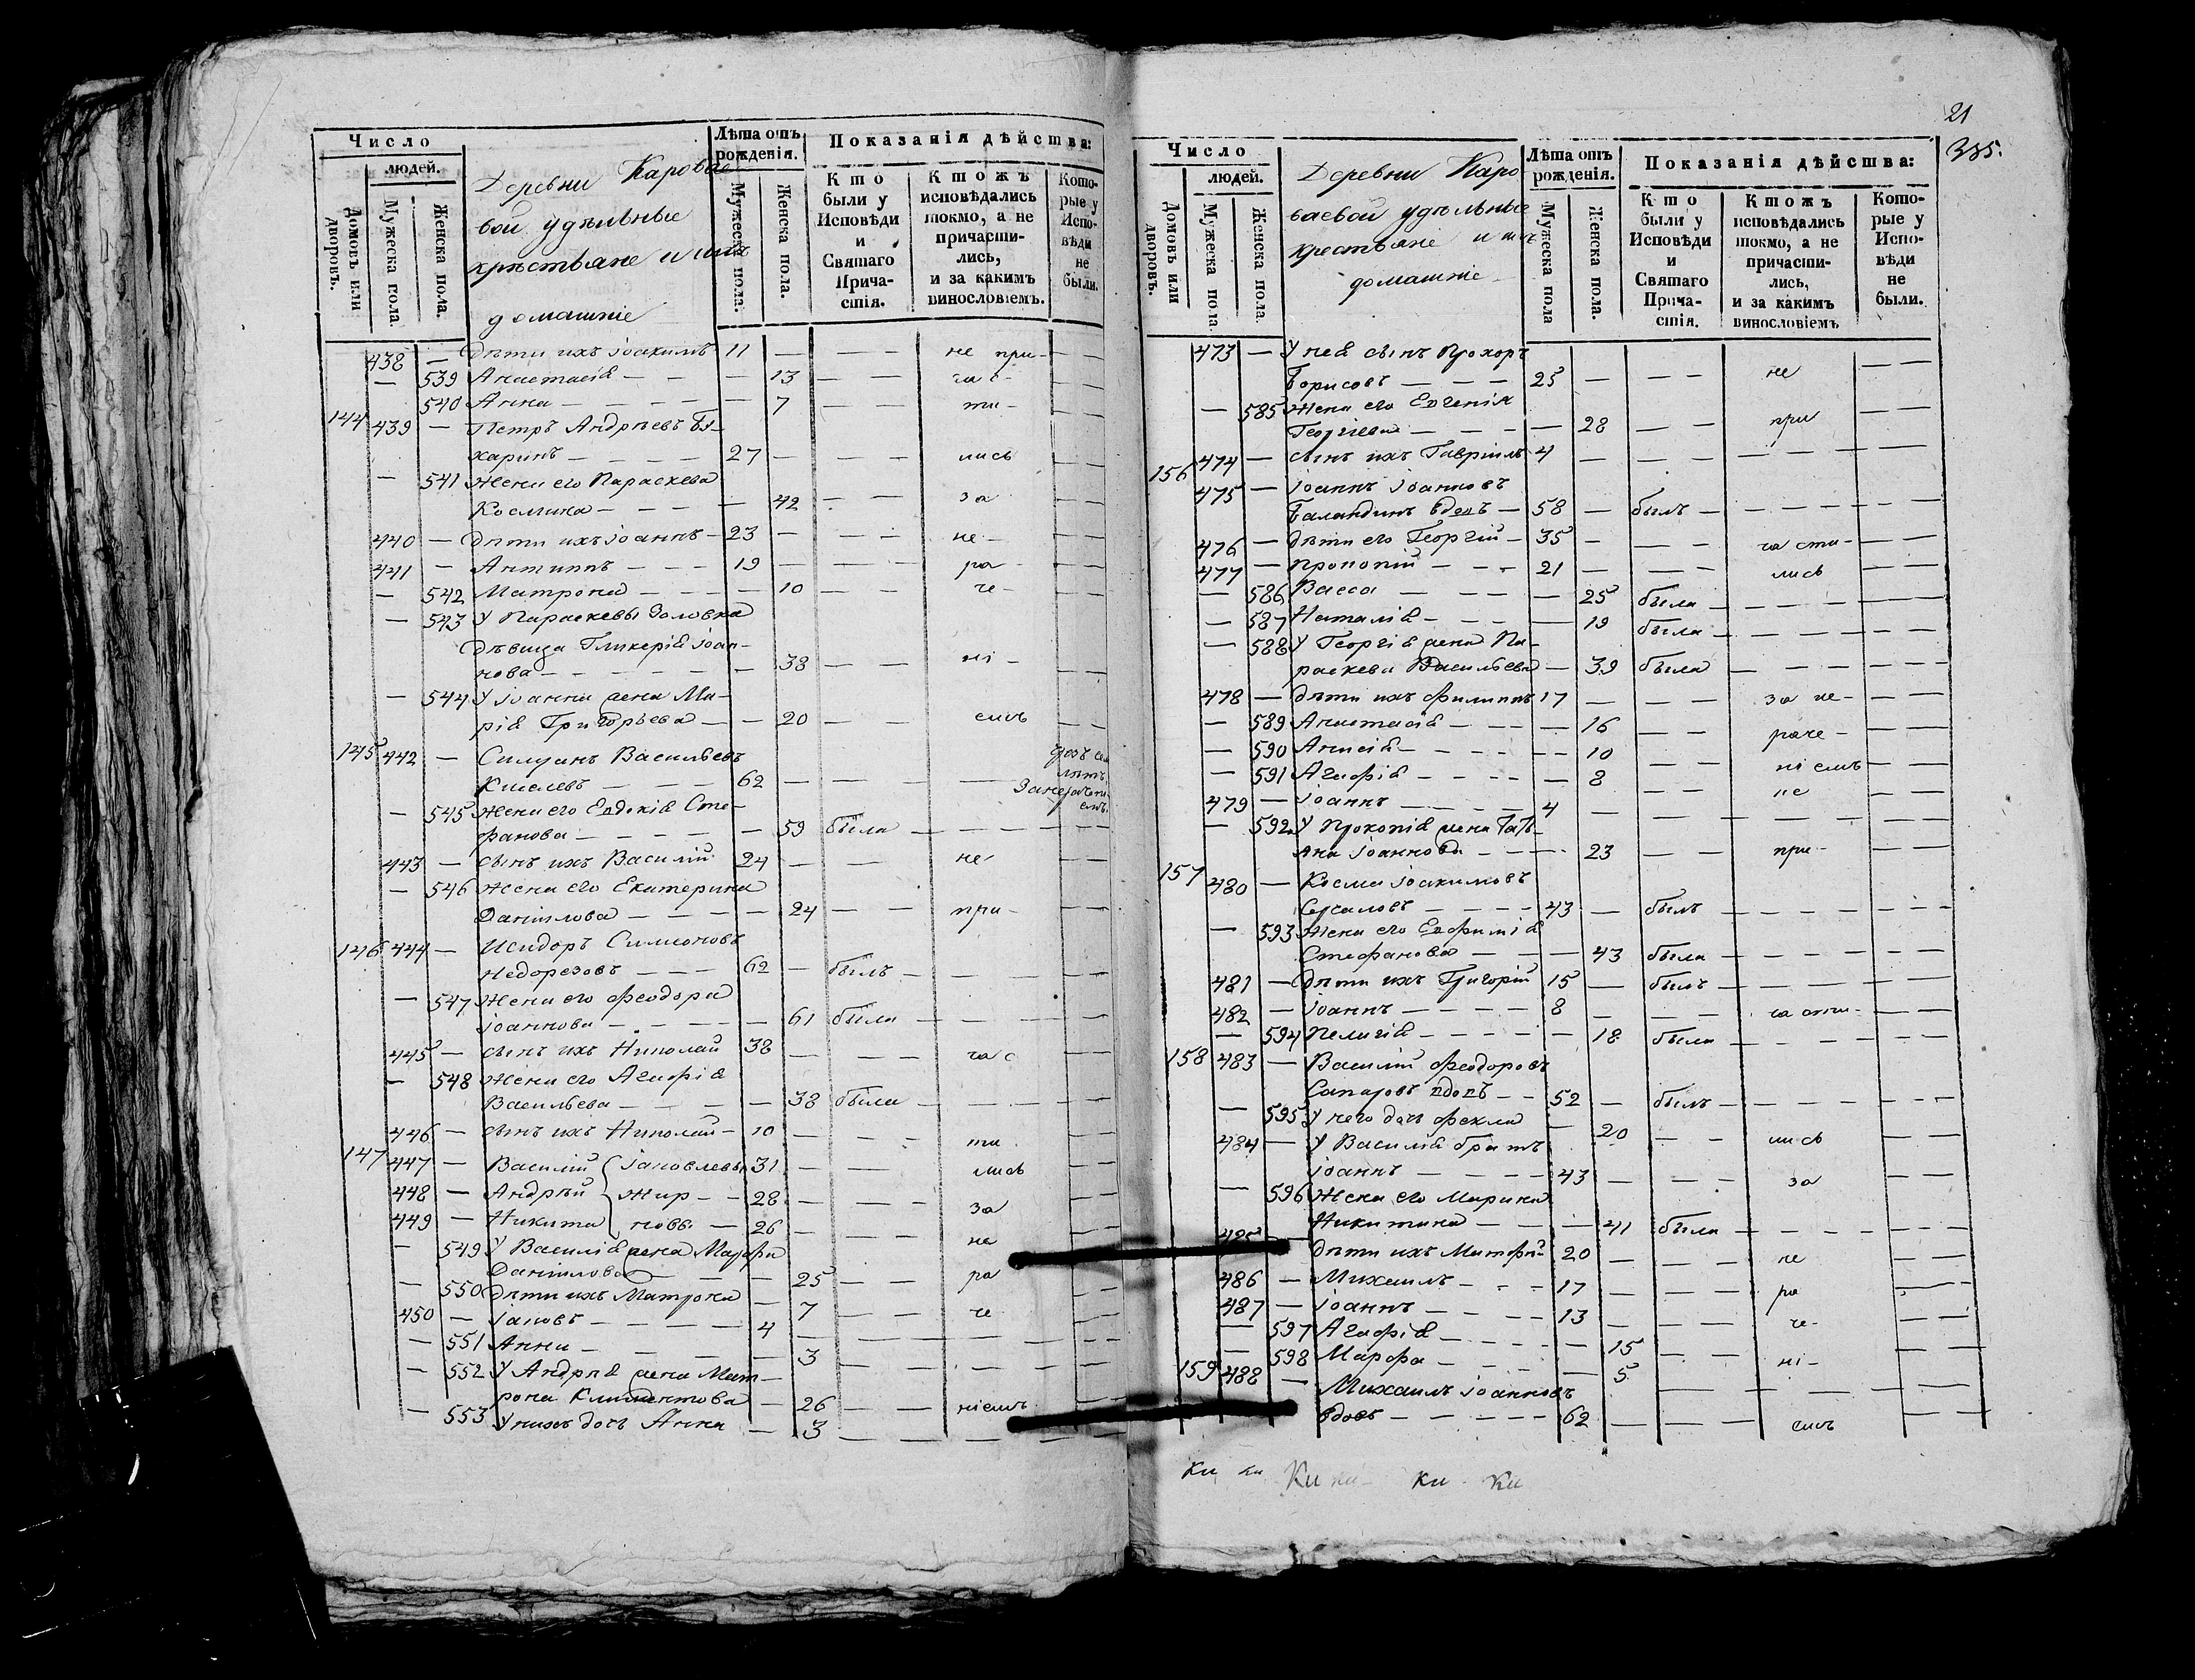 Число
людей.
Домовъ или дворовъ.
Мужеска пола.
Женска пола.
Деревни Карова
вой удѣльные
крѣстьяне и ихъ
домашніе
Лѣта отъ рожденія.
Мужеска пола.
Женска пола.
Показанія дѣйства:
Кто были у Исповѣди и Святаго Причастія.
Ктожъ исповѣдались токмо, а не причастились, и за какимъ винословіемъ.
Которые у Исповѣди не были.
438 — Дѣти ихъ Іоакимъ 11 — — — не при- — —
— 539 Анастасія — — — 13 — — час- — —
540 Анна — — — — 7 — — ти- — —
144 439 — Петръ Андрѣевъ Бу-
харинъ — — — — 27 — — — лись — —
— 541 Жена его Параскева
Космина — — — — 42 — — за — —
440 — Дѣти ихъ Іоаннъ — 23 — — — не- — —
441 — Антипъ — — — 19 — — — ра- — —
— 542 Матрона — — — — 10 — — че- — —
— 543 У Параскевы Золовка
Дѣвица Гликерія Іоан-
нова — — — — — 38 — — ні- — —
— 544 У Іоанна жена Ма-
рія Григорьева — — 20 — — емъ — —
145 442 — Силуанъ Васильевъ
Киселевъ — — — 62 — — — —
За нераче
емъ.
— 545 Жена его Евдокія Сте-
фанова — — — — — 59 была — — — — —
443 — Сынъ ихъ Василій 24 — — — не- — —
— 546 Жена его Екатерина
Даніилова — — — — 24 — — при- — —
146 444 — Исидоръ Симионовъ
Недорезовъ — — — 62 — былъ — — — — —
— 547 Жена его Феодора
Іоаннова — — — — — 61 была — — — — —
445 — Сынъ ихъ Николай 38 — — — час — —
— 548 Жена его Агафія
Васильева — — — — 38 была — — — — —
446 — Сынъ ихъ Николай — 10 — — — ти — —
147 447 — Василій Іаковлевы 31 — — лись — —
448 — Андрѣй Жир- — 28 — — — за — —
449 — Никита новы — 26 — — — не — —
— 549 У Василія жена Марфа
Даніилова — — — 25 — — ра
— 550 Дѣти ихъ Матрона — 7 — — че
450 — Іаковъ — — — — 4 — — — — —
— 551 Анна — — — — — 3 — — — — —
— 552 У Андрѣя жена Мат-
рона Климентова — 26 — — ніемъ
— 553 У нихъ дочь Анна — 3 — — — — —
21
385.
Число
людей.
Домовъ или дворовъ.
Мужеска пола
Женска пола.
Деревни Каро
ваевой удѣльные
крестьяне и ихъ
домашніе
Лѣта отъ рожденія.
Мужеска пола
Женска пола.
Показанія дѣйства:
Кто были у Исповѣди и Святаго Причастія.
Ктожъ исповѣдались токмо, а не причастились, и за какимъ винословіемъ
Которые у Исповѣди не были.
473 — У нея сынъ Прохоръ
Борисовъ — — — 25 — — — не — —
— 585 Жена его Евгенія
Георгіева — — — — 28 — — при — —
474 — Сынъ ихъ Гавріилъ 4 — — — — — —
156 475 — Іоаннъ Іоанновъ
Баландинъ вдовъ — 58 — былъ — — — — —
476 — Дѣти его Георгій — 35 — — — части- — —
477 — Прокопій — — — 21 — — — лись — —
— 586 Васса — — — — 25 была — — — — —
— 587 Наталія — — — — 19 была — — — — —
— 588 У Георгія жена Па-
раскева Васильева — 39 была — — — — —
478 — Дѣти ихъ Филиппъ 17 — — — за не- — —
— 589 Анастасія — — — — 16 — — раче- — —
— 590 Анисія — — — — — 10 — — ніемъ — —
— 591 Агафія — — — — — 8 — — не — —
479 — Іоаннъ — — — — 4 — — — — —
— 592 У Прокопія жена Татья-
яна Іоаннова — — — 23 — — при- — —
157 480 — Косма Іоакимовъ
— — — — 43 — былъ — — — — —
— 593 Жена его Евфимія
Стефанова — — — 43 была — — — — —
481 — Дѣти ихъ Григорій 15 — былъ — — — — —
482 — Іоаннъ — — — — 8 — — — части- — —
— 594 Пелагія — — — — — 18 была — — — — —
158 483 — Василій Феодоровъ
Сапаровъ вдовъ — — 52 — былъ — — — — —
— 595 У него дочь Фекла — 20 — — лись — —
484 — У Василія братъ
Іоаннъ — — — — 43 — — — за — —
— 596 Жена его Марина
Никитина — — — — 41 была — — — — —
485 — Дѣти ихъ Матфѣй 20 — — — не — —
486 — Михаилъ — — — 17 — — — ра — —
487 — Іоаннъ — — — — 13 — — — че- — —
— 597 Агафія — — — — — 15 — — ні- — —
— 598 Марфа — — — — — 5 — — — — —
159 488 — Михаилъ Іоанновъ
вдовъ — — — — — 62 — — — емъ — —
Ки ки Ки ки- ки- Ки